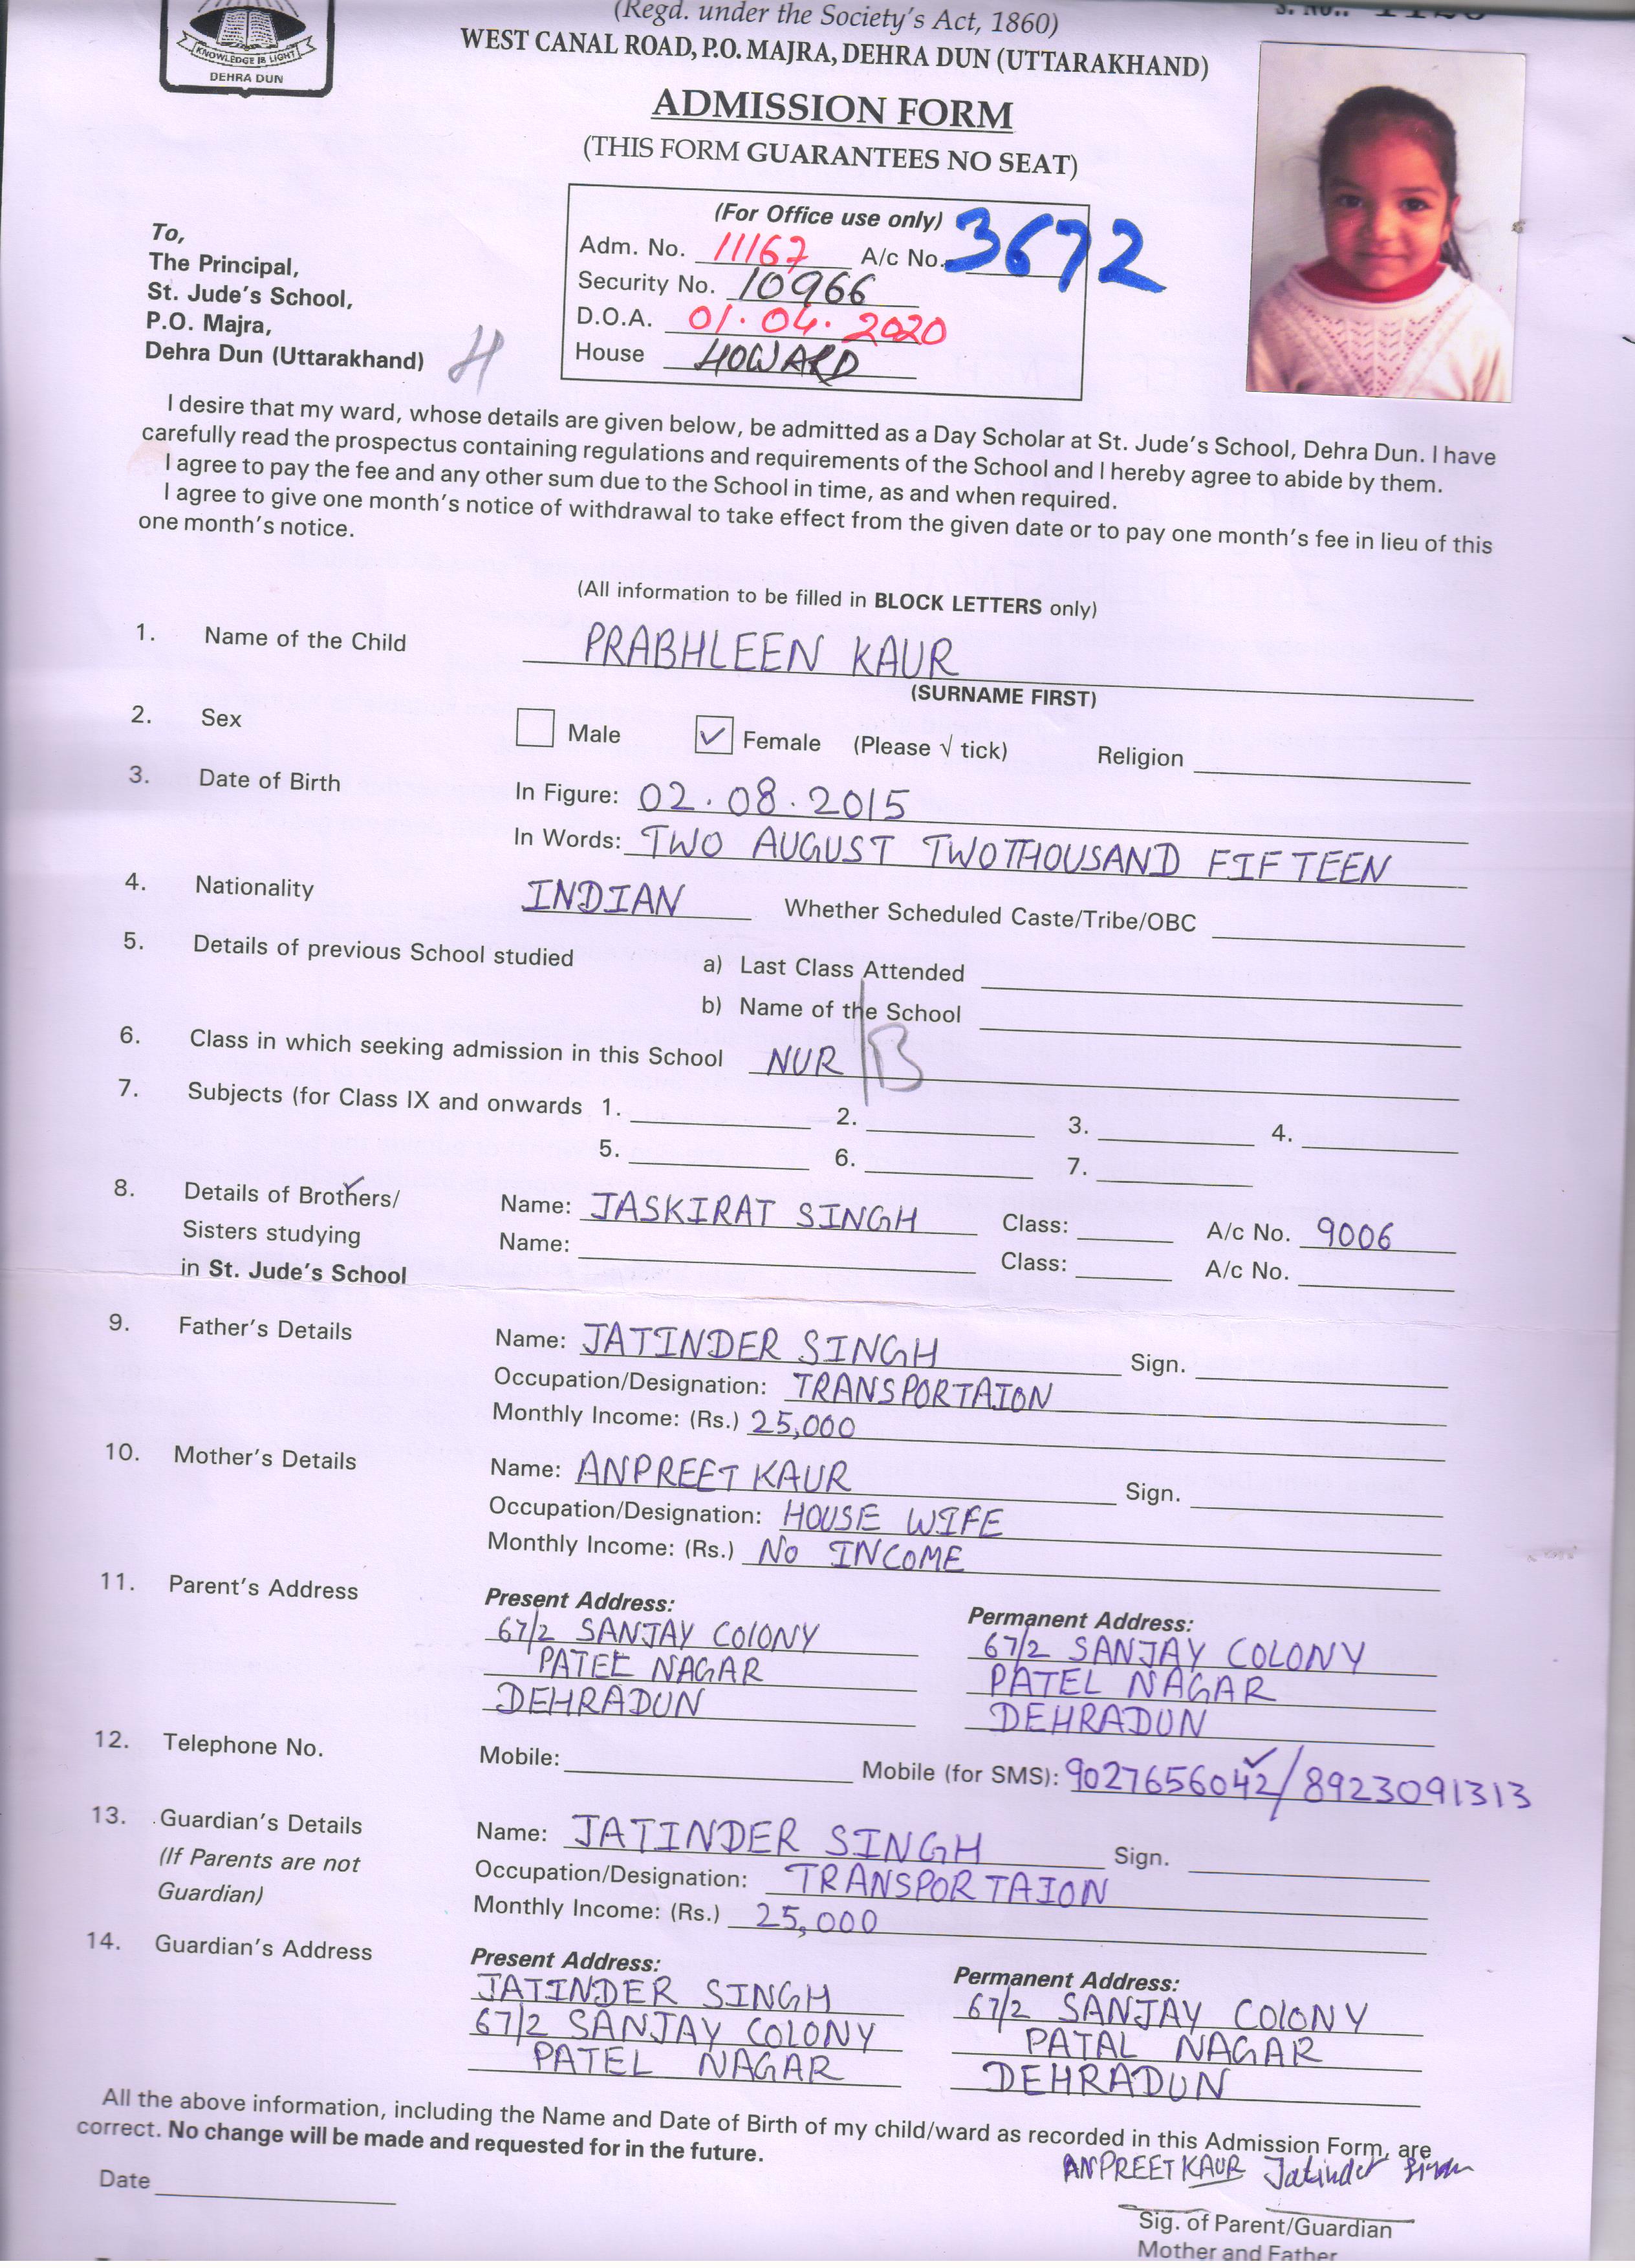 (Regd. under the Society's Act, 1860)
WEST CANAL ROAD, P.O. MAJRA, DEHRA DUN (UTTARAKHAND)
KNOWLEDGE IS LIGHT
DEHRA DUN
ADMISSION FORM
(THIS FORM GUARANTEES NO SEAT)
(For Office use only)
Adm. No. 11167 A/c No. 3672
Security No. 10966
D.O.A. 01.04.2020
House HOWARD
To,
The Principal,
St. Jude's School,
P.O. Majra,
Dehra Dun (Uttarakhand) H
I desire that my ward, whose details are given below, be admitted as a Day Scholar at St. Jude's School, Dehra Dun. I have
carefully read the prospectus containing regulations and requirements of the School and I hereby agree to abide by them.
I agree to pay the fee and any other sum due to the School in time, as and when required.
I agree to give one month's notice of withdrawal to take effect from the given date or to pay one month's fee in lieu of this
one month's notice.
(All information to be filled in BLOCK LETTERS only)
1. Name of the Child PRABHLEEN KAUR
(SURNAME FIRST)
2. Sex Male ✓ Female (Please √ tick) Religion
3. Date of Birth In Figure: 02.08.2015
In Words: TWO AUGUST TWOTHOUSAND FIFTEEN
4. Nationality INDIAN Whether Scheduled Caste/Tribe/OBC
5. Details of previous School studied a) Last Class Attended
b) Name of the School
6. Class in which seeking admission in this School NUR | B
7. Subjects (for Class IX and onwards 1. 2. 3. 4.
5. 6. 7.
8. Details of Brothers/ Name: JASKIRAT SINGH Class: A/c No. 9006
Sisters studying Name: Class: A/c No.
in St. Jude's School
9. Father's Details Name: JATINDER SINGH Sign.
Occupation/Designation: TRANSPORTAION
Monthly Income: (Rs.) 25,000
10. Mother's Details Name: ANPREET KAUR Sign.
Occupation/Designation: HOUSE WIFE
Monthly Income: (Rs.) NO INCOME
11. Parent's Address Present Address: Permanent Address:
67/2 SANJAY COLONY 67/2 SANJAY COLONY
PATEL NAGAR PATEL NAGAR
DEHRADUN DEHRADUN
12. Telephone No. Mobile: Mobile (for SMS): 9027656042/8923091313
13. Guardian's Details Name: JATINDER SINGH Sign.
(If Parents are not Occupation/Designation: TRANSPORTAION
Guardian) Monthly Income: (Rs.) 25,000
14. Guardian's Address Present Address: Permanent Address:
JATINDER SINGH 67/2 SANJAY COLONY
67/2 SANJAY COLONY PATAL NAGAR
PATEL NAGAR DEHRADUN
All the above information, including the Name and Date of Birth of my child/ward as recorded in this Admission Form, are
correct. No change will be made and requested for in the future.
ANPREET KAUR Jatinder Singh
Date
Sig. of Parent/Guardian
Mother and Father